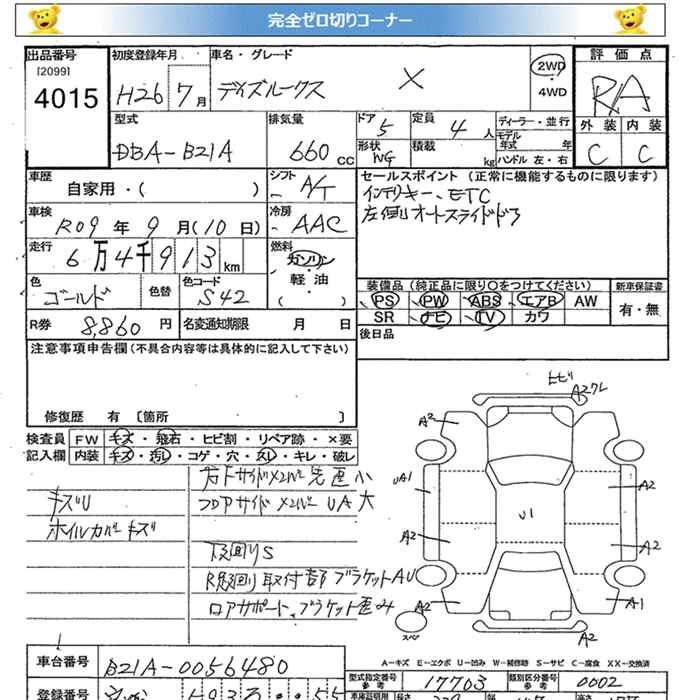 完全ゼロ切りコーナー
出品番号 初度登録年月 車名・グレード 評価点
[2099] H26 7月 デイズルークス X 2WD・4WD RA
4015
型式 排気量 ドア 5 定員 4人 ディーラー・並行 外装 内装
DBA-B21A 660cc 形状 WG 積載 kg モデル年式 年 C C
ハンドル 左・右
車歴 自家用・( ) シフト A/T セールスポイント (正常に機能するものに限ります)
車検 R09年9月(10日) 冷房 AAC インテリキー、ETC
左側オートスライドドア
走行 6万4千913km 燃料 ガソリン・軽油・( )
色 ゴールド 色替 色コード S42 装備品 (純正品に限り○をつけてください) 新車保証書
PS PW ABS エアB AW 有・無
SR ナビ TV カワ
R券 8,860円 名変通知期限 月 日 後日品
注意事項申告欄(不具合内容等は具体的に記入して下さい)
修復歴 有 [箇所 ]
検査員 FW キズ・飛石・ヒビ割・リペア跡・×要
記入欄 内装 キズ・汚レ・コゲ・穴・スレ・キレ・破レ
キズU
ホイルカバーキズ
下回りS
ロアサポート、ブラケット歪み
ヒビ
A2
A2
UA1
A2
U1
A2
A2
A2
A1
A2
スペア
A-キズ E-エクボ U-凹み W-補修跡 S-サビ C-腐食 XX-交換済
車台番号 B21A-0056480
型式指定番号 参考 17703 類別区分番号 参考 0002
登録番号